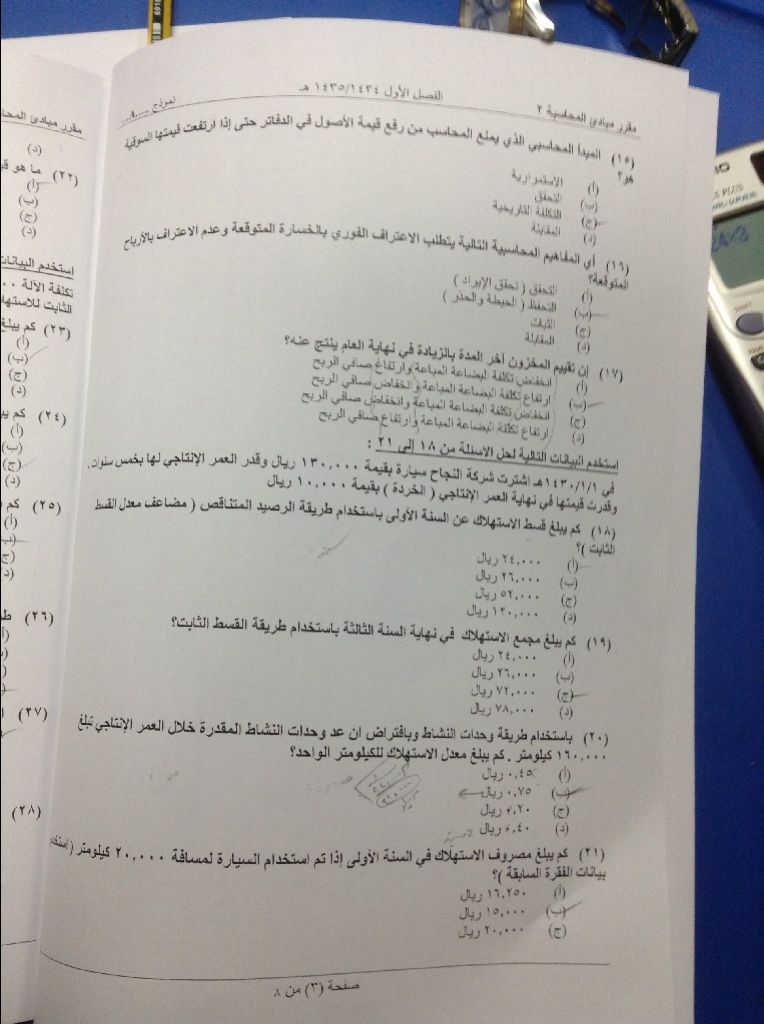 مقرر مبادئ المحاسبة ٢
الفصل الأول ١٤٣٥/١٤٣٤ هـ
نموذج ....٨....
(١٥) المبدأ المحاسبي الذي يمنع المحاسب من رفع قيمة الأصول في الدفاتر حتى إذا ارتفعت قيمتها السوقية
هو؟
(أ) الاستمرارية
(ب) التحقق
(ج) التكلفة التاريخية
(د) المقابلة
(١٦) أي المفاهيم المحاسبية التالية يتطلب الاعتراف الفوري بالخسارة المتوقعة وعدم الاعتراف بالأرباح
المتوقعة؟
(أ) التحقق ( تحقق الإيراد )
(ب) التحفظ ( الحيطة والحذر )
(ج) الثبات
(د) المقابلة
(١٧) إن تقييم المخزون آخر المدة بالزيادة في نهاية العام ينتج عنه؟
(أ) انخفاض تكلفة البضاعة المباعة وارتفاع صافي الربح
(ب) ارتفاع تكلفة البضاعة المباعة وانخفاض صافي الربح
(ج) انخفاض تكلفة البضاعة المباعة وانخفاض صافي الربح
(د) ارتفاع تكلفة البضاعة المباعة وارتفاع صافي الربح
استخدم البيانات التالية لحل الاسئلة من ١٨ إلى ٢١ :
في ١٤٣٠/١/١هـ اشترت شركة النجاح سيارة بقيمة ١٣٠,٠٠٠ ريال وقدر العمر الإنتاجي لها بخمس سنوات.
وقدرت قيمتها في نهاية العمر الإنتاجي ( الخردة ) بقيمة ١٠,٠٠٠ ريال
(١٨) كم يبلغ قسط الاستهلاك عن السنة الأولى باستخدام طريقة الرصيد المتناقص ( مضاعف معدل القسط
الثابت )؟
(أ) ٢٤,٠٠٠ ريال
(ب) ٢٦,٠٠٠ ريال
(ج) ٥٢,٠٠٠ ريال
(د) ١٢٠,٠٠٠ ريال
(١٩) كم يبلغ مجمع الاستهلاك في نهاية السنة الثالثة باستخدام طريقة القسط الثابت؟
(أ) ٢٤,٠٠٠ ريال
(ب) ٢٦,٠٠٠ ريال
(ج) ٧٢,٠٠٠ ريال
(د) ٧٨,٠٠٠ ريال
(٢٠) باستخدام طريقة وحدات النشاط وبافتراض ان عدد وحدات النشاط المقدرة خلال العمر الإنتاجي تبلغ
١٦٠,٠٠٠ كيلومتر . كم يبلغ معدل الاستهلاك للكيلومتر الواحد؟
(أ) ٠,٤٥ ريال
(ب) ٠,٧٥ ريال
(ج) ٧,٢٠ ريال
(د) ٧,٤٠ ريال
(٢١) كم يبلغ مصروف الاستهلاك في السنة الأولى إذا تم استخدام السيارة لمسافة ٢٠,٠٠٠ كيلومتر (
بيانات الفقرة السابقة )؟
(أ) ١٦,٢٥٠ ريال
(ب) ١٥,٠٠٠ ريال
(ج) ٢٠,٠٠٠ ريال
صفحة (٣) من ٨
مقرر مبادئ
(د)
(٢٢) ما هو
(أ)
(ب)
(ج)
(د)
استخدم البيانات
تكلفة الآلة
(٢٣) كم يبلغ
(أ)
(ب)
(ج)
(د)
(٢٤) كم
(أ)
(ب)
(ج)
(د)
(٢٥) كم
(أ)
(ب)
(ج)
(د)
(٢٦)
(٢٧)
(٢٨)
PLUS